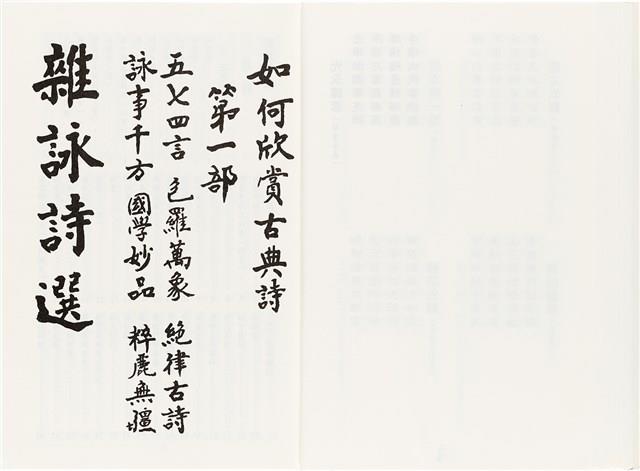 如何欣賞古典詩
第一部
五七四言 包羅萬象 絕律古詩
詠事千方 國學妙品 粹麗無疆
雜詠詩選